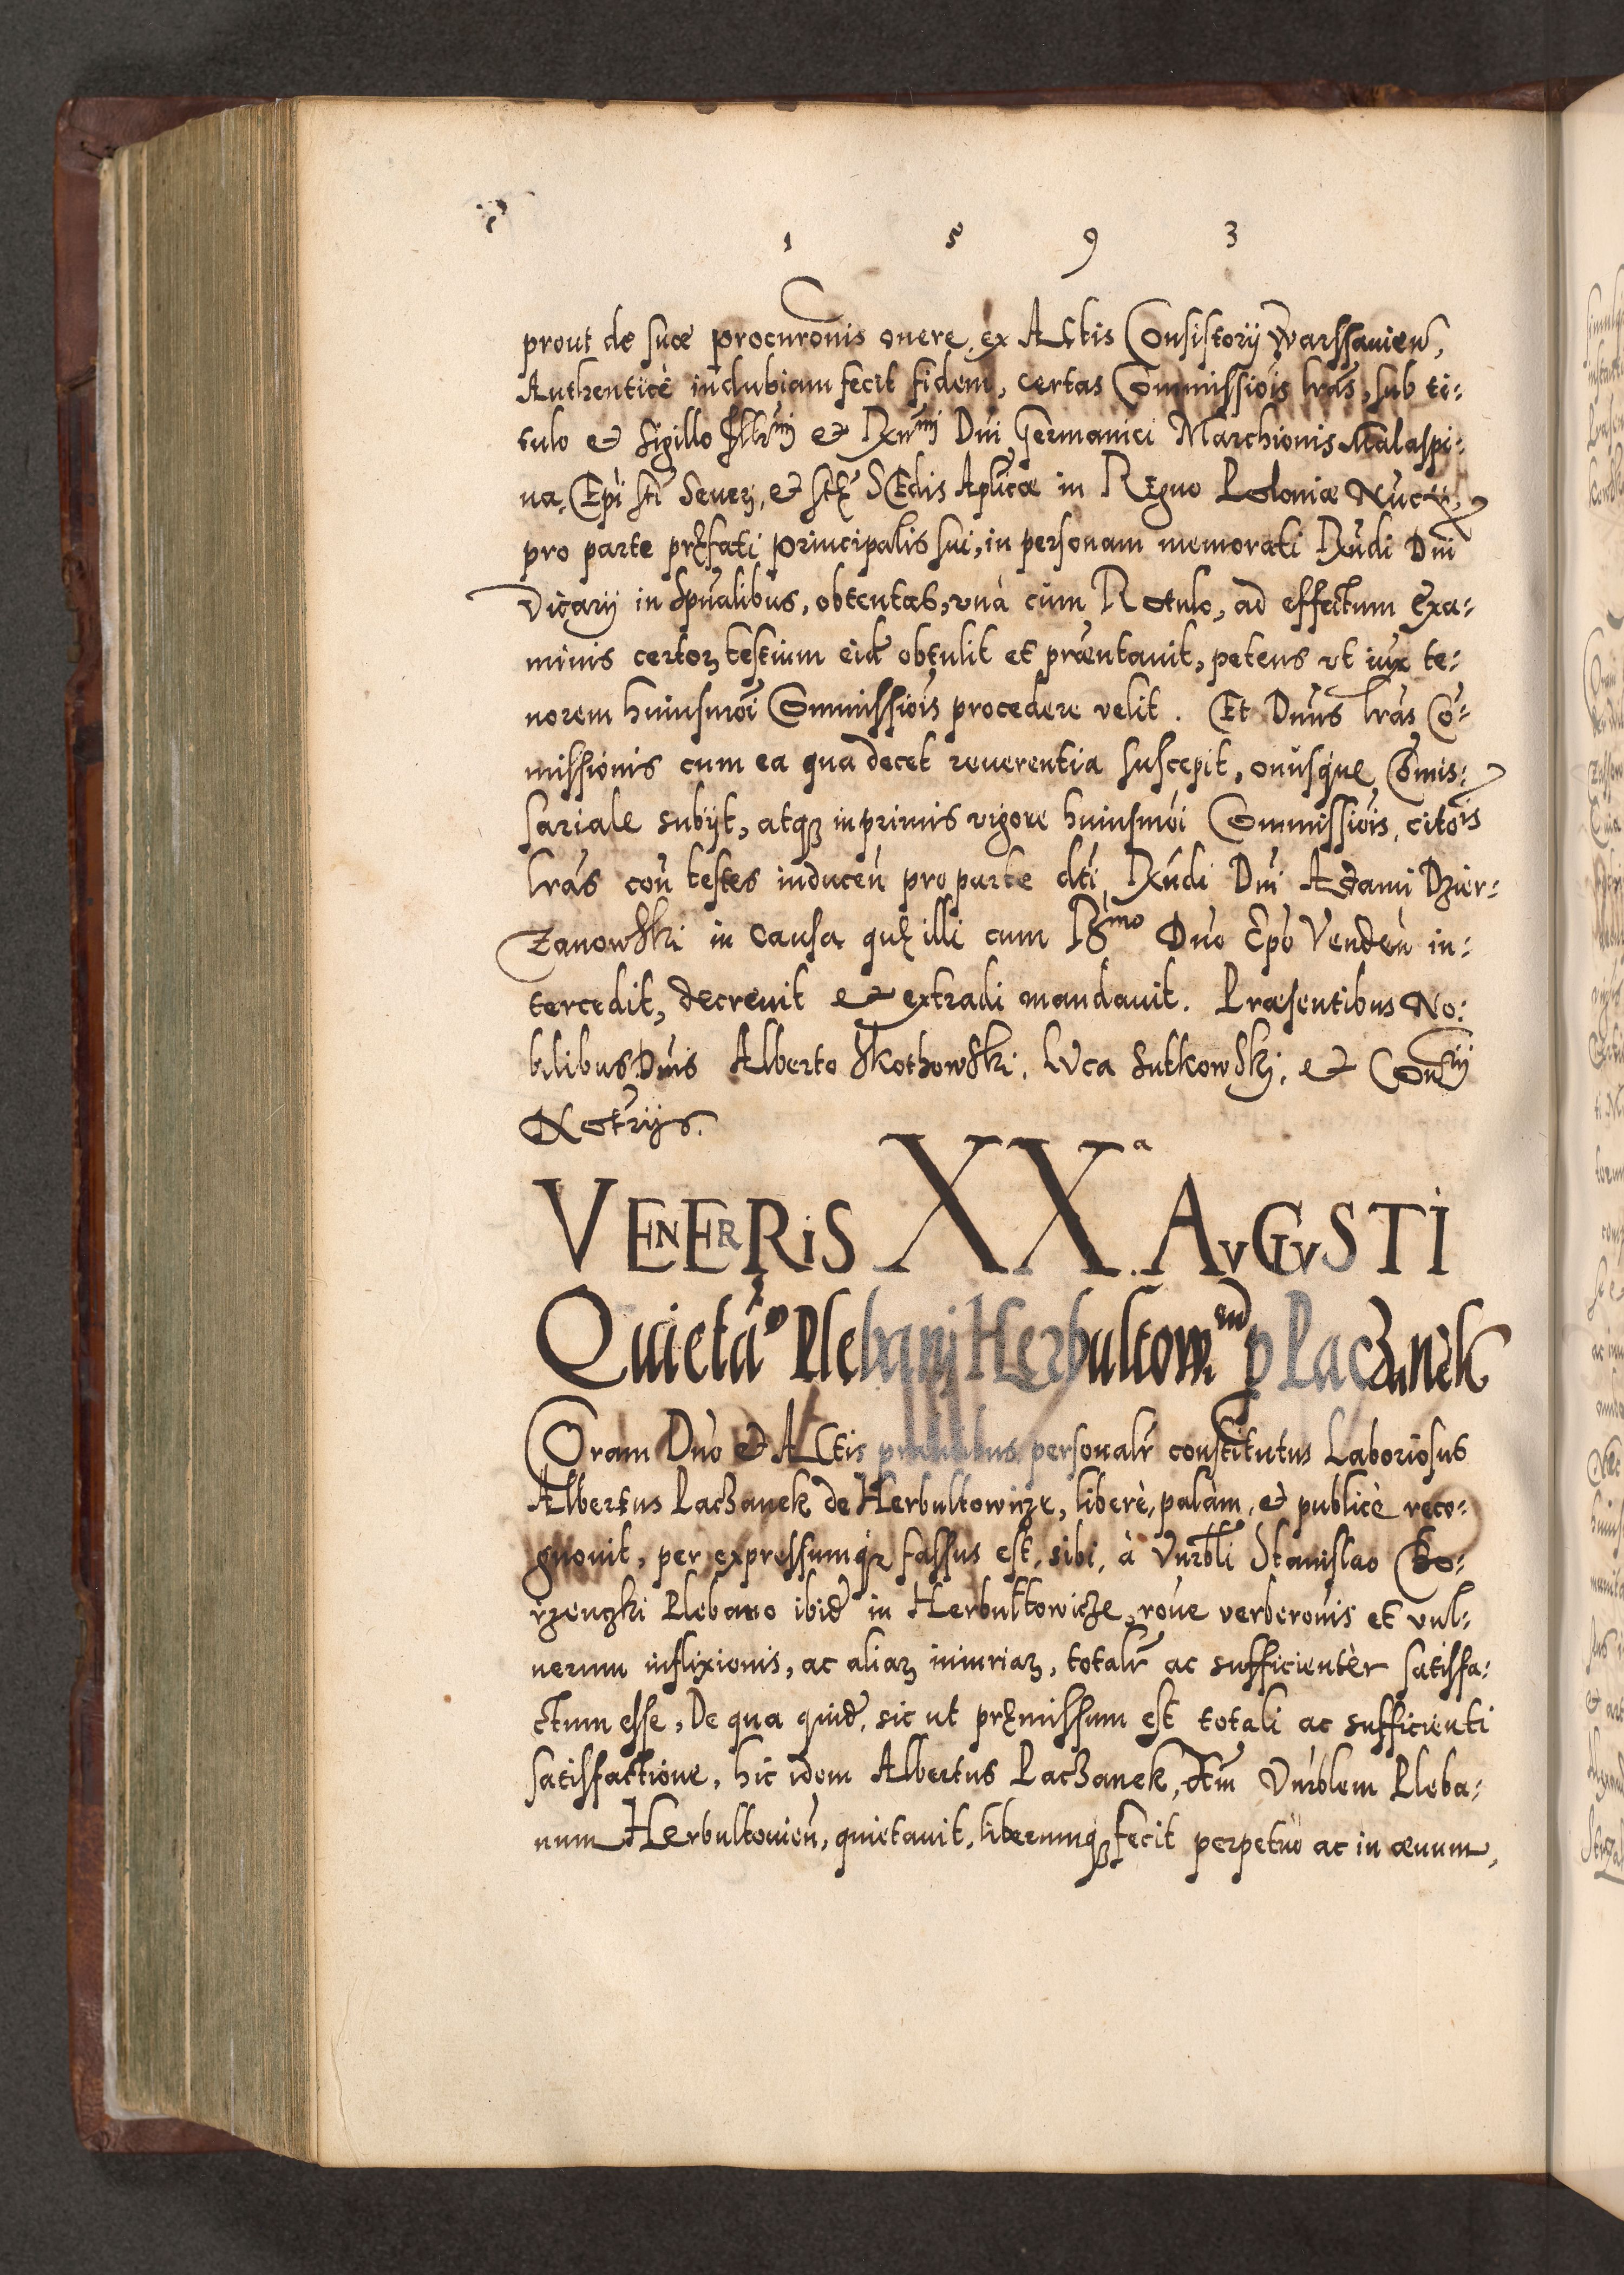 1 5 9 3
prout de suæ procurōnis onere, ex Actis Consistorij Warssavien̄,
Authenticè indubiam fecit fidem, certas Commissiōis lr̄as, sub ti=
tulo et Sigillo Ill͞rmi et R͞xmi Dn̄i Germanici Marchionis Malaspi=
na, Ep̄i sti Severj, et stę SEdis Aplicæ in REgno Poloniæ Nuncij,
pro parte pręfati principalis sui, in personam memorati Rx̄ndi Dn̄i
Vicarij in Spūalibus, obtentas, vnà cum Rotulo, ad effectum Exa=
minis certoꝝ testium eid̄ obtulit et præn̄tauit, petens vt iux̄ te=
norem huiusmōi Commissiōis procedere velit. Et Dn̄us lr̄as Cō=
missionis cum ea qua decet reuerentia suscepit, onusque Cōmis=
sariale subijt, atqꝫ inprimis vigore huiusmōi Commissiōis, citōis
lr̄as con̄ testes inducen̄ pro parte dc̄ti Rx̄ndi Dn̄i Adami Dzier=
zanowski in causa quę illi cum R͞smo Dn̄o Ep̄o Venden̄ in=
tercedit, decreuit et extradi mandauit. Præsentibus No=
bilibus Dn̄is Alberto Skothowski, Luca Sutkowskj, et Con̄rij
Notr̄ijs.
VENERIS XXª AvGvSTI
Quietā̊o Plebanj Herbultowⁿ p Laczanek
Coram Dn̄o et Actis præn̄tibus personalr̄ constitutus Laboriosus
Albertus Laczanek de Herbultowicze, liberè, palàm, et publicè reco=
gnouit, per expressumqꝫ fassus est, sibi, à Vn̄rbli Stanislao Ko=
rzenczki Plebano ibid̄ in Herbultowicze, rōne verberōnis et vul=
nerum inflixionis, ac aliaꝝ iniuriaꝝ, totalr̄ ac sufficientèr satisfa=
ctum esse, De qua quid̄, sic ut pręmissum est totali ac sufficienti
satisfactione, hic idem Albertus Laczanek, dc̄tm̄ Vn̄rblem Pleba=
num Herbultouien̄, quietauit, liberumqꝫ fecit perpetuò ac in æuum,